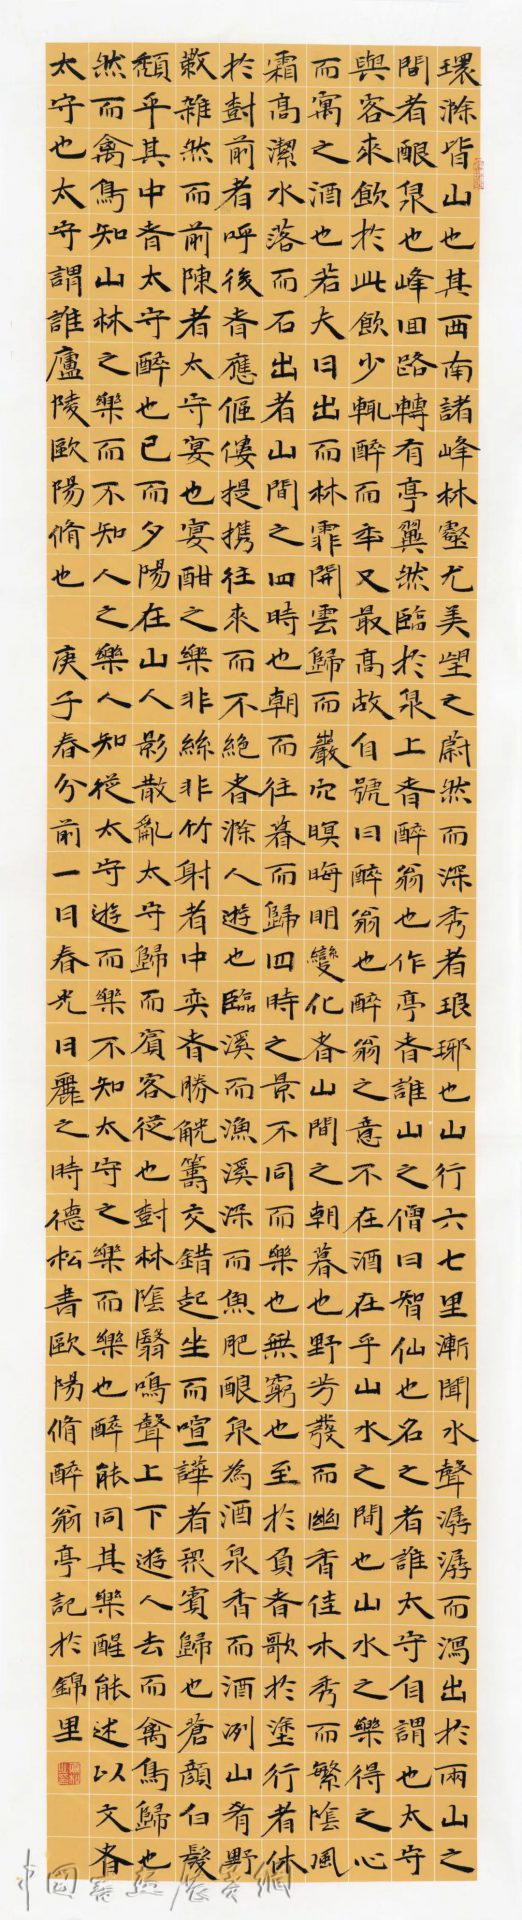 環滁皆山也其西南諸峰林壑尤美望之蔚然而深秀者琅琊也山行六七里漸聞水聲潺潺而瀉出於兩山之
間者釀泉也峰回路轉有亭翼然臨於泉上者醉翁也作亭者誰山之僧曰智仙也名之者誰太守自謂也太守
與客來飲於此飲少輒醉而年又最高故自號曰醉翁也醉翁之意不在酒在乎山水之間也山水之樂得之心
而寓之酒也若夫日出而林霏開雲歸而巖穴暝晦明變化者山間之朝暮也野芳發而幽香佳木秀而繁陰風
霜高潔水落而石出者山間之四時也朝而往暮而歸四時之景不同而樂也無窮也至於負者歌於塗行者休
於樹前者呼後者應傴僂提攜往來而不絕者滁人遊也臨溪而漁溪深而魚肥釀泉為酒泉香而酒洌山肴野
蔌雜然而前陳者太守宴也宴酣之樂非絲非竹射者中奕者勝觥籌交錯起坐而喧譁者眾賓歸也蒼顏白髮
頹乎其中者太守醉也已而夕陽在山人影散亂太守歸而賓客從也樹林陰翳鳴聲上下遊人去而禽鳥歸也
然而禽鳥知山林之樂而不知人之樂人知從太守遊而樂不知太守之樂而樂也醉能同其樂醒能述以文者
太守也太守謂誰廬陵歐陽脩也 庚子春分前一日春光日麗之時德松書歐陽脩醉翁亭記於錦里
中國書法展賽網